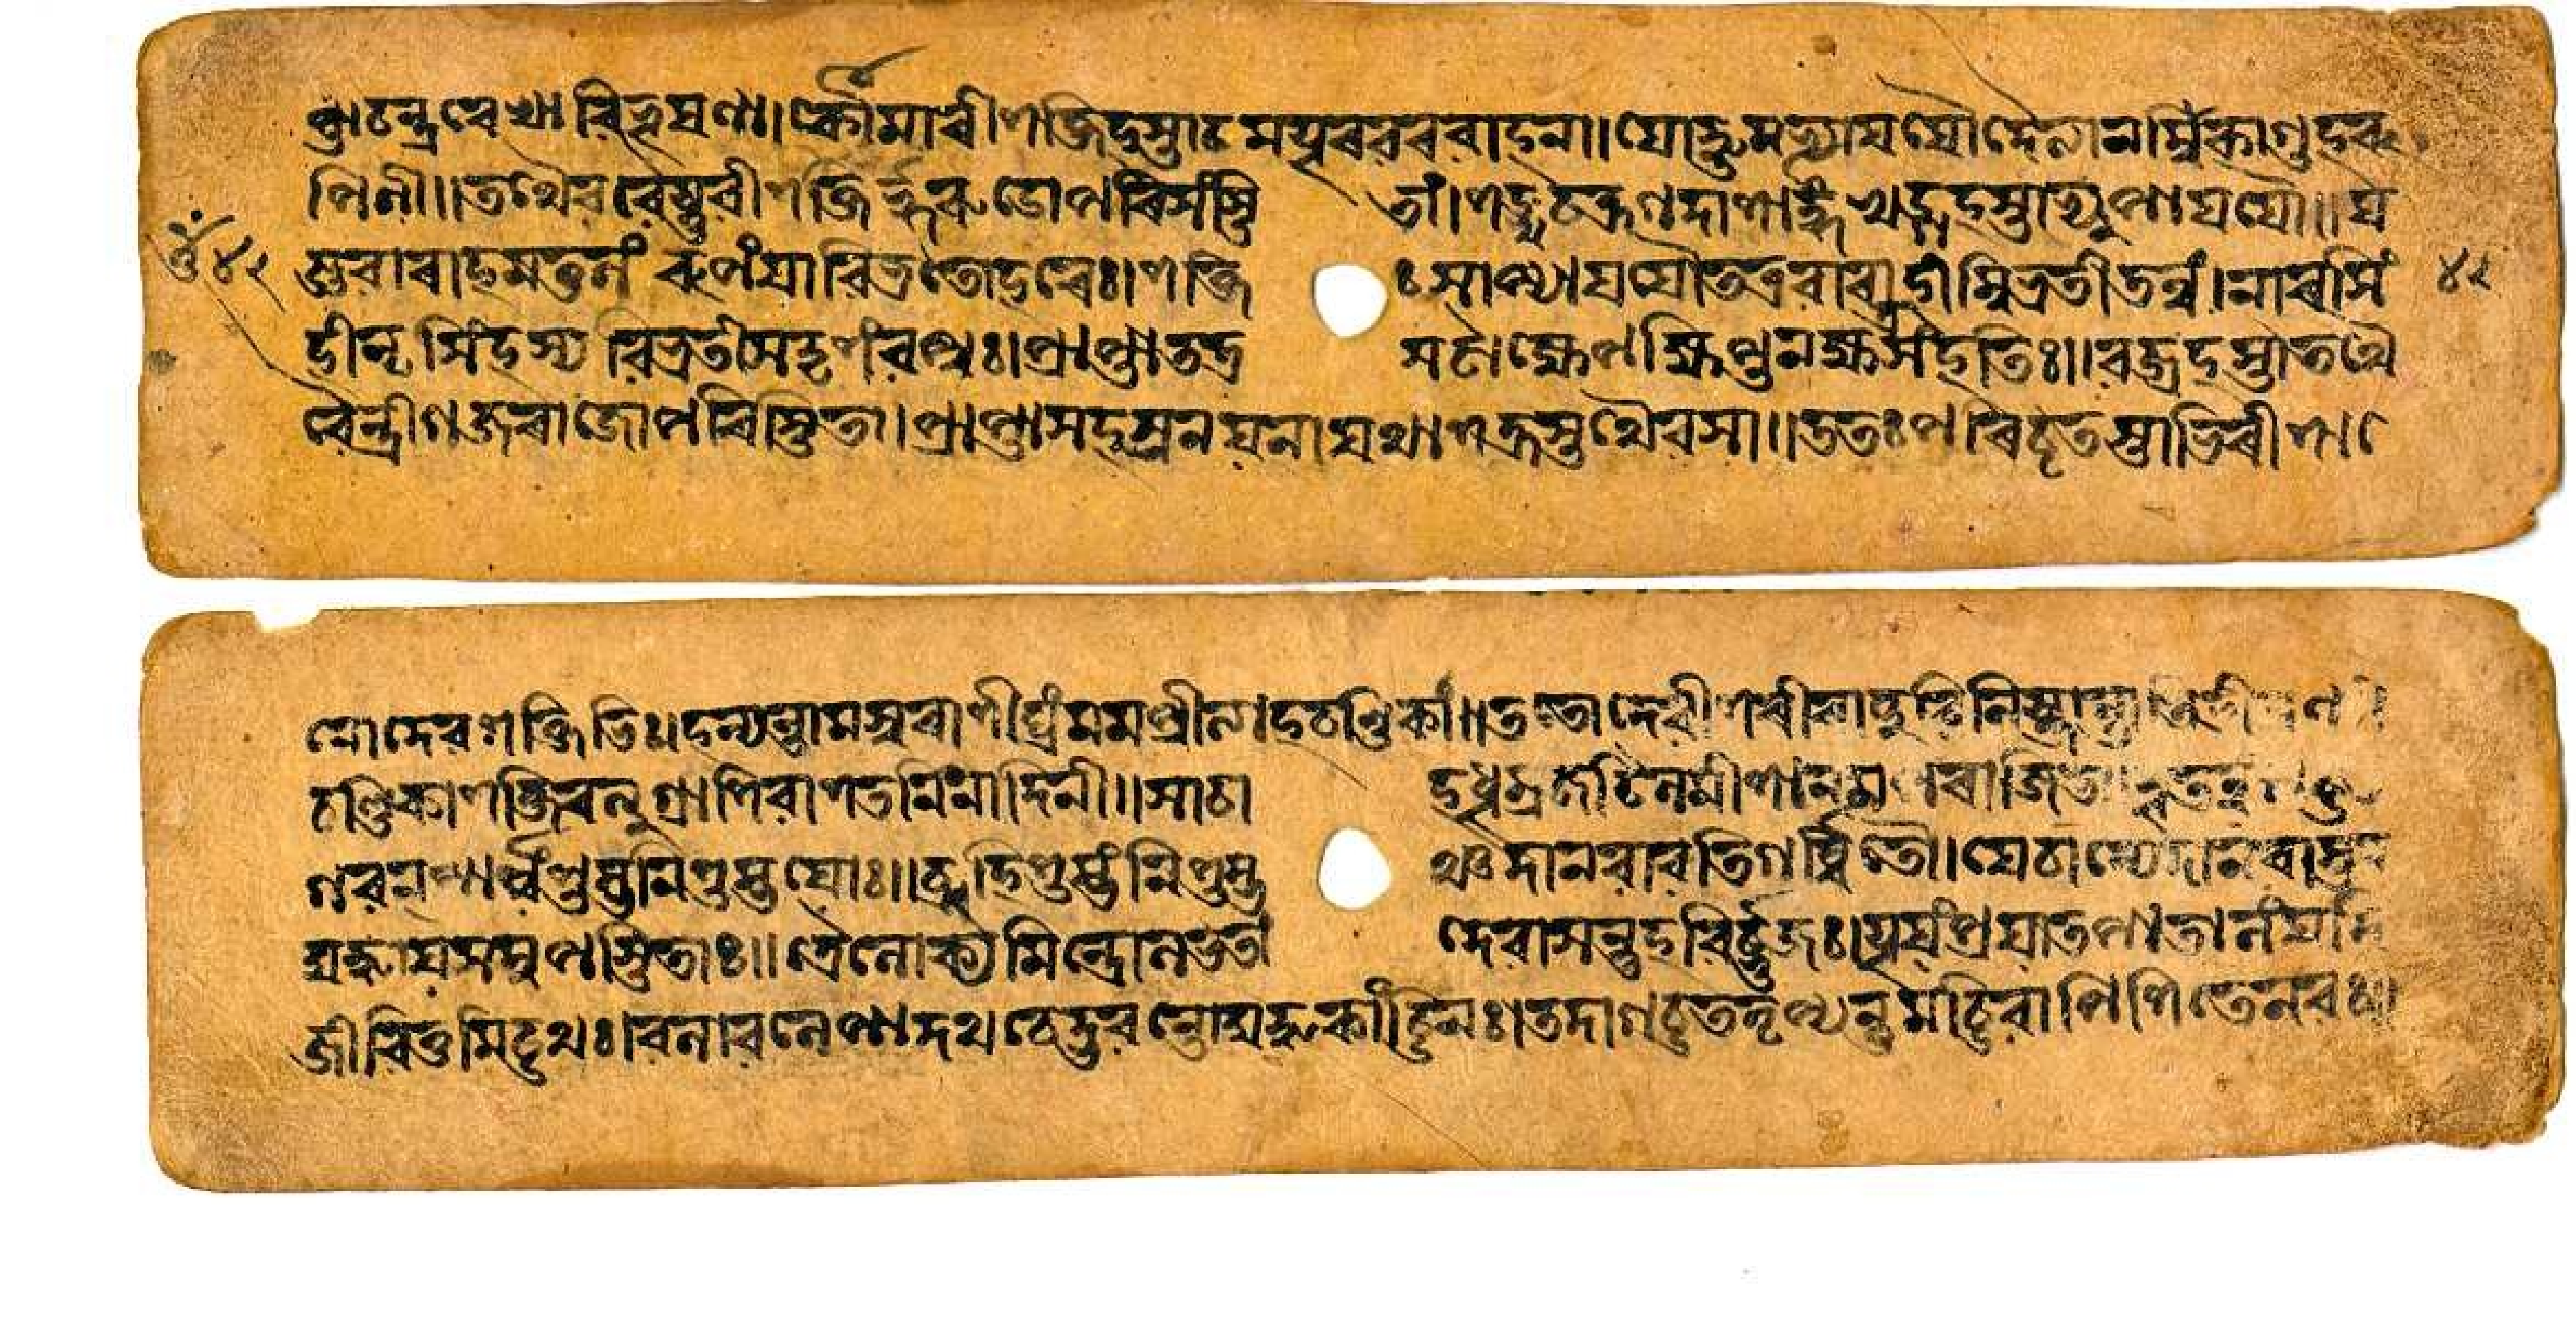 প্তা চন্দ্ৰৰেখাবিভূষণা। কৌমাৰী শক্তিহস্তা চ মযূৰবৰবাহনা। যোদ্ধুমভ্যাযযৌ দৈত্যানম্বিকা গুহৰূ
পিণী॥ তথৈব বৈষ্ণবী শক্তিৰ্গৰুডোপৰিসংস্থিতা। শঙ্খচক্ৰগদাশাৰ্ঙ্গখড্গহস্তাভ্যুপাযযৌ॥ য
৪২ জ্ঞবাৰাহমতুলং ৰূপং যা বিভ্ৰতো হৰেঃ। শক্তিঃ সাপ্যাযযৌ তত্ৰ বাৰাহীম্বিভ্ৰতী তনুং। নাৰসিং ৪২
হী নৃসিংহস্য বিভ্ৰতী সদৃশং বপুঃ। প্ৰাপ্তা তত্ৰ সটাক্ষেপক্ষিপ্তনক্ষত্ৰসংহতিঃ॥ বজ্ৰহস্তা তথৈ
বৈন্দ্ৰী গজৰাজোপৰিস্থিতা। প্ৰাপ্তা সহস্ৰনযনা যথা শক্ৰস্তথৈব সা॥ ততঃ পৰিবৃতস্তাভিৰীশা
নো দেবশক্তিভিঃ। হন্যন্তামসুৰা শীঘ্ৰং মম প্ৰীত্যাহ চণ্ডিকাং॥ ততো দেবীশৰীৰাত্তু বিনিষ্ক্ৰান্তাতিভীষণা
চণ্ডিকাশক্তিৰত্যুগ্ৰা শিবাশতনিনাদিনী॥ সা চাহ ধূম্ৰজটিলমীশানমপৰাজিতা
ভগবন পাৰ্শ্বং শুম্ভনিশুম্ভযোঃ॥ ব্ৰূহি শুম্ভং নিশুম্ভঞ্চ দানবাবতিগৰ্ব্বিতৌ। যে চান্যে দানবাস্তত্ৰ
যুদ্ধায সমুপস্থিতাঃ॥ ত্ৰৈলোক্যমিন্দ্ৰো লভতাং দেবাসন্তু হবিৰ্ভুজঃ। যূযং প্ৰযাত পাতালং যদি
জীবিতুমিচ্ছথঃ। বলাবলেপাদথ চেদ্ভবন্তো যুদ্ধকাংক্ষিণঃ। তদাগচ্ছত তৃপ্যন্তু মচ্ছিবা পিশিতেন বঃ॥